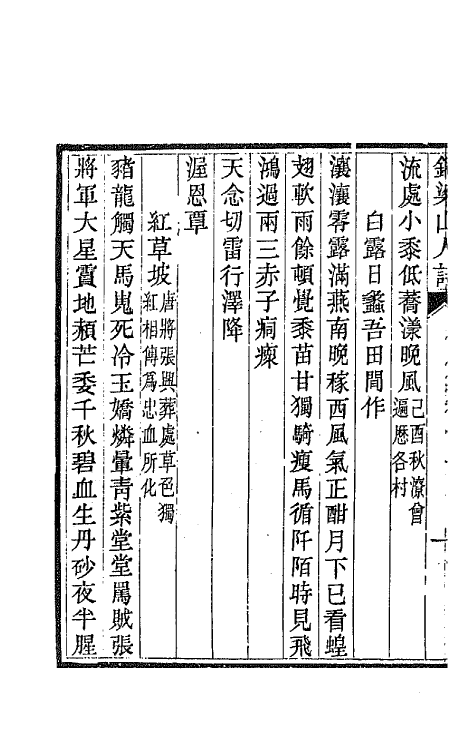 銅梁山人詩
流處小黍低蕎漾晚風己酉秋潦曾遍歷各村
白露日蠡吾田間作
瀼瀼零露滿燕南晚稼西風氣正酣月下已看蝗
翅軟雨餘頓覺黍苗甘獨騎瘦馬循阡陌時見飛
鴻過兩三赤子痌瘝
天念切雷行澤降
渥恩覃
紅草坡唐將張興葬處草色獨紅相傳爲忠血所化
豬龍觸天馬嵬死冷玉嬌燐暈青紫堂堂罵賊張
將軍大星霣地頳芒委千秋碧血生丹砂夜半腥